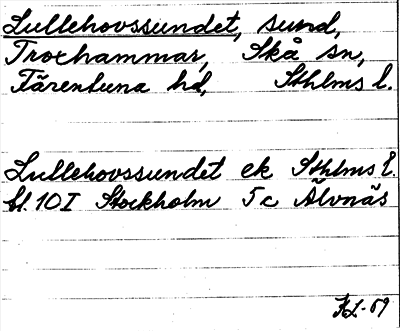 Lullehovssundet, sund,
Troxhammar, Skå sn,
Färentuna hd, Sthlms l.
Lullehovssundet ek Sthlms l.
bl. 10 I Stockholm 5 c Älvnäs